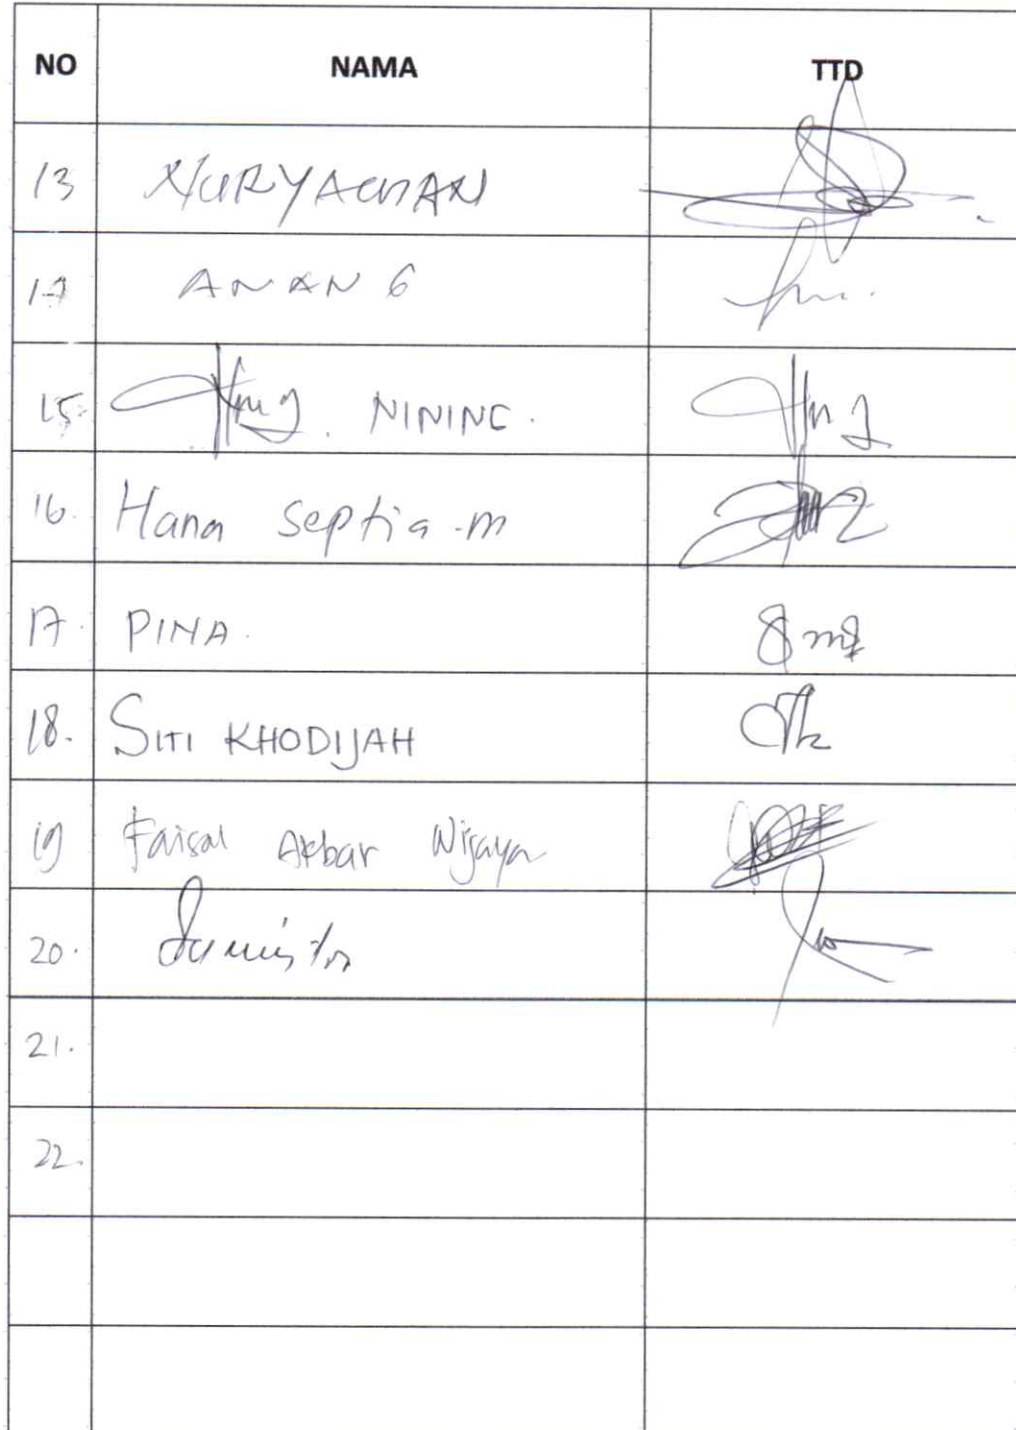 NO NAMA TTD
13 NURYAMAN
14 ANANG
15. NINING.
16. Hana Septia.m
17. PINA.
18. SITI KHODIJAH
19 Faisal Akbar Wijaya
20.
21.
22.